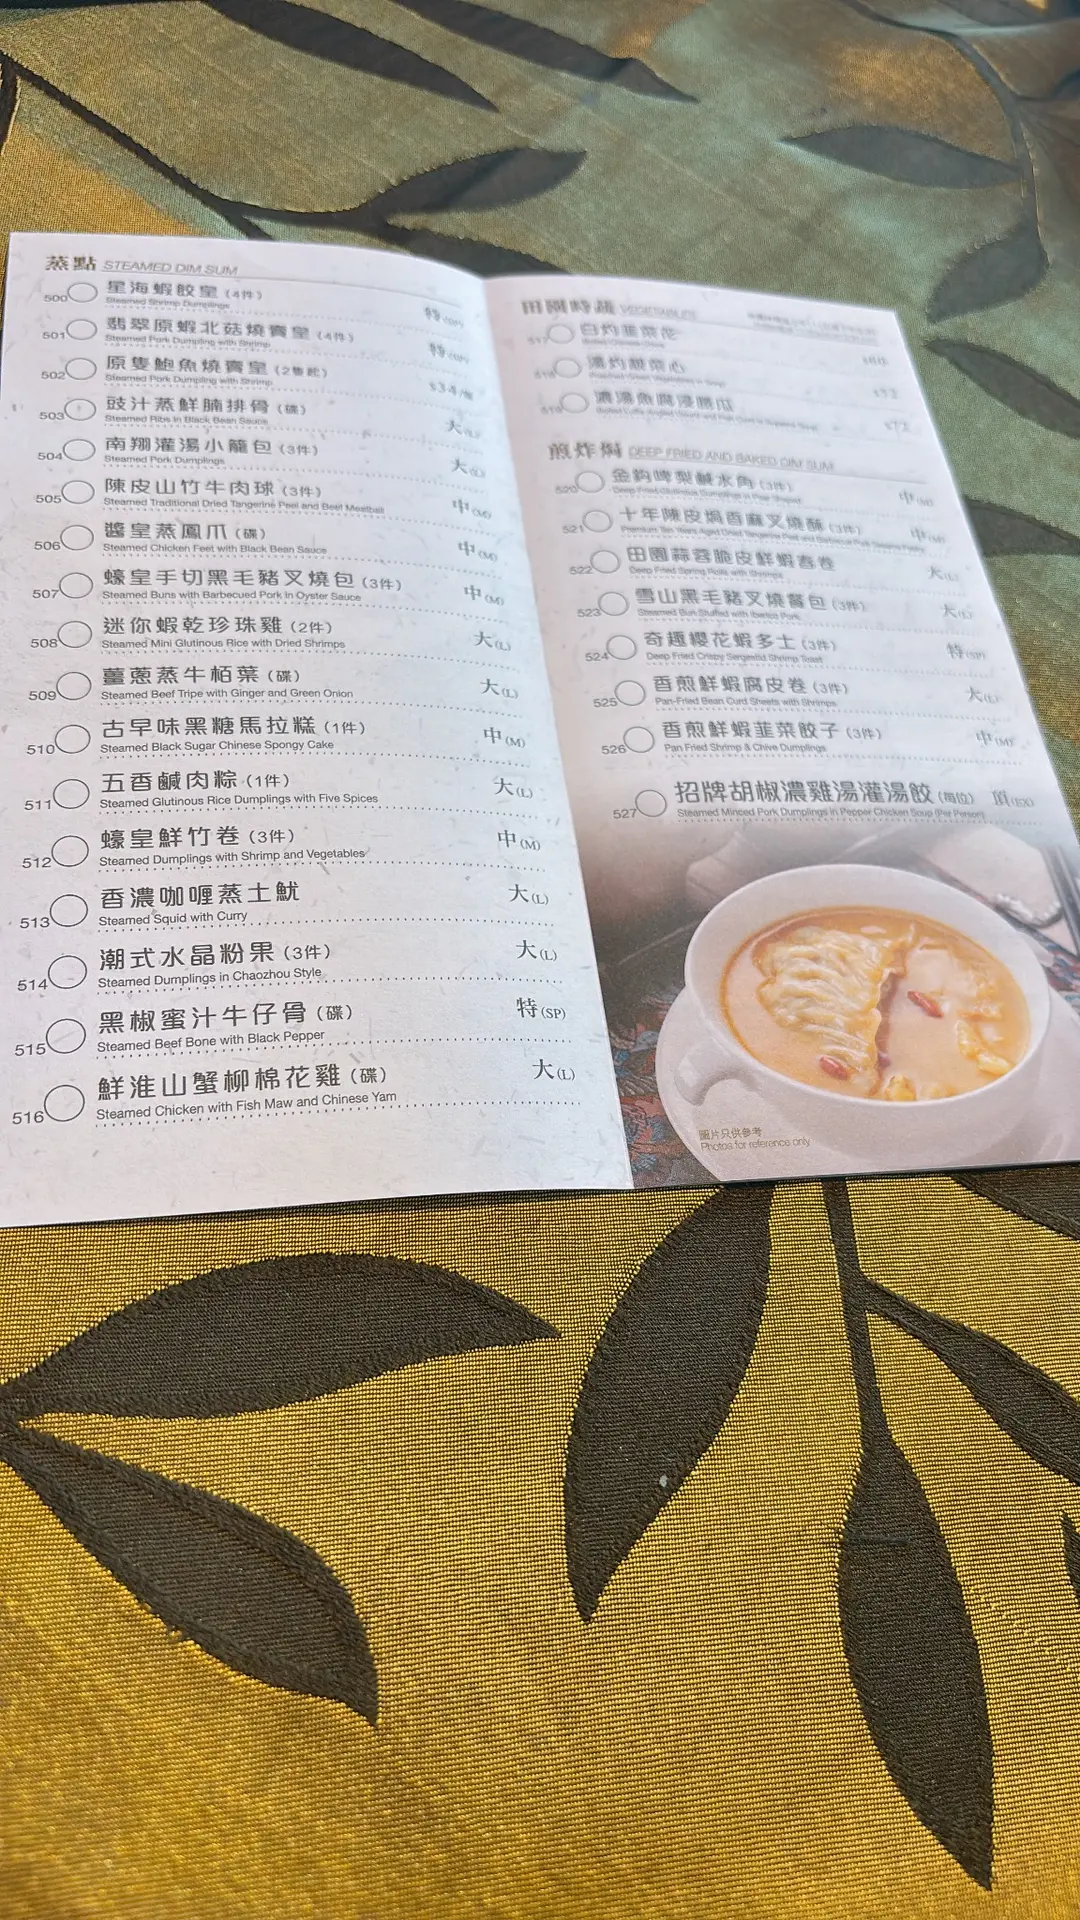 蒸點 STEAMED DIM SUM
500 星海蝦餃皇 (4件) 特(SP)
Steamed Shrimp Dumplings
501 翡翠原蝦北菇燒賣皇 (4件) 特(SP)
Steamed Pork Dumpling with Shrimp
502 原隻鮑魚燒賣皇 (2隻起) $34/隻
Steamed Pork Dumpling with Shrimp
503 豉汁蒸鮮腩排骨 (碟) 大(L)
Steamed Ribs in Black Bean Sauce
504 南翔灌湯小籠包 (3件) 大(L)
Steamed Pork Dumplings
505 陳皮山竹牛肉球 (3件) 中(M)
Steamed Traditional Dried Tangerine Peel and Beef Meatball
506 醬皇蒸鳳爪 (碟) 中(M)
Steamed Chicken Feet with Black Bean Sauce
507 蠔皇手切黑毛豬叉燒包 (3件) 中(M)
Steamed Buns with Barbecued Pork in Oyster Sauce
508 迷你蝦乾珍珠雞 (2件) 大(L)
Steamed Mini Glutinous Rice with Dried Shrimps
509 薑蔥蒸牛栢葉 (碟) 大(L)
Steamed Beef Tripe with Ginger and Green Onion
510 古早味黑糖馬拉糕 (1件) 中(M)
Steamed Black Sugar Chinese Spongy Cake
511 五香鹹肉粽 (1件) 大(L)
Steamed Glutinous Rice Dumplings with Five Spices
512 蠔皇鮮竹卷 (3件) 中(M)
Steamed Dumplings with Shrimp and Vegetables
513 香濃咖喱蒸土魷 大(L)
Steamed Squid with Curry
514 潮式水晶粉果 (3件) 大(L)
Steamed Dumplings in Chaozhou Style
515 黑椒蜜汁牛仔骨 (碟) 特(SP)
Steamed Beef Bone with Black Pepper
516 鮮淮山蟹柳棉花雞 (碟) 大(L)
Steamed Chicken with Fish Maw and Chinese Yam
田園時蔬 VEGETABLES
517 白灼韮菜花
518
519
煎炸焗 DEEP FRIED AND BAKED DIM SUM
520 金鈎啤梨鹹水角 (3件) 中(M)
Deep Fried Glutinous Dumplings in Pear Shaped
521 十年陳皮焗香麻叉燒酥 (3件) 中(M)
522 田園蒜蓉脆皮鮮蝦春卷 大(L)
Deep Fried Spring Rolls with Shrimps
523 雪山黑毛豬叉燒餐包 (3件) 大(L)
Steamed Bun Stuffed with Iberico Pork
524 奇趣櫻花蝦多士 (3件) 特(SP)
Deep Fried Crispy Sergestid Shrimp Toast
525 香煎鮮蝦腐皮卷 (3件) 大(L)
Pan-Fried Bean Curd Sheets with Shrimps
526 香煎鮮蝦韮菜餃子 (3件) 中(M)
Pan Fried Shrimp & Chive Dumplings
527 招牌胡椒濃雞湯灌湯餃 (每位) 頂(EX)
Steamed Minced Pork Dumplings in Pepper Chicken Soup (Per Person)
圖片只供參考
Photos for reference only